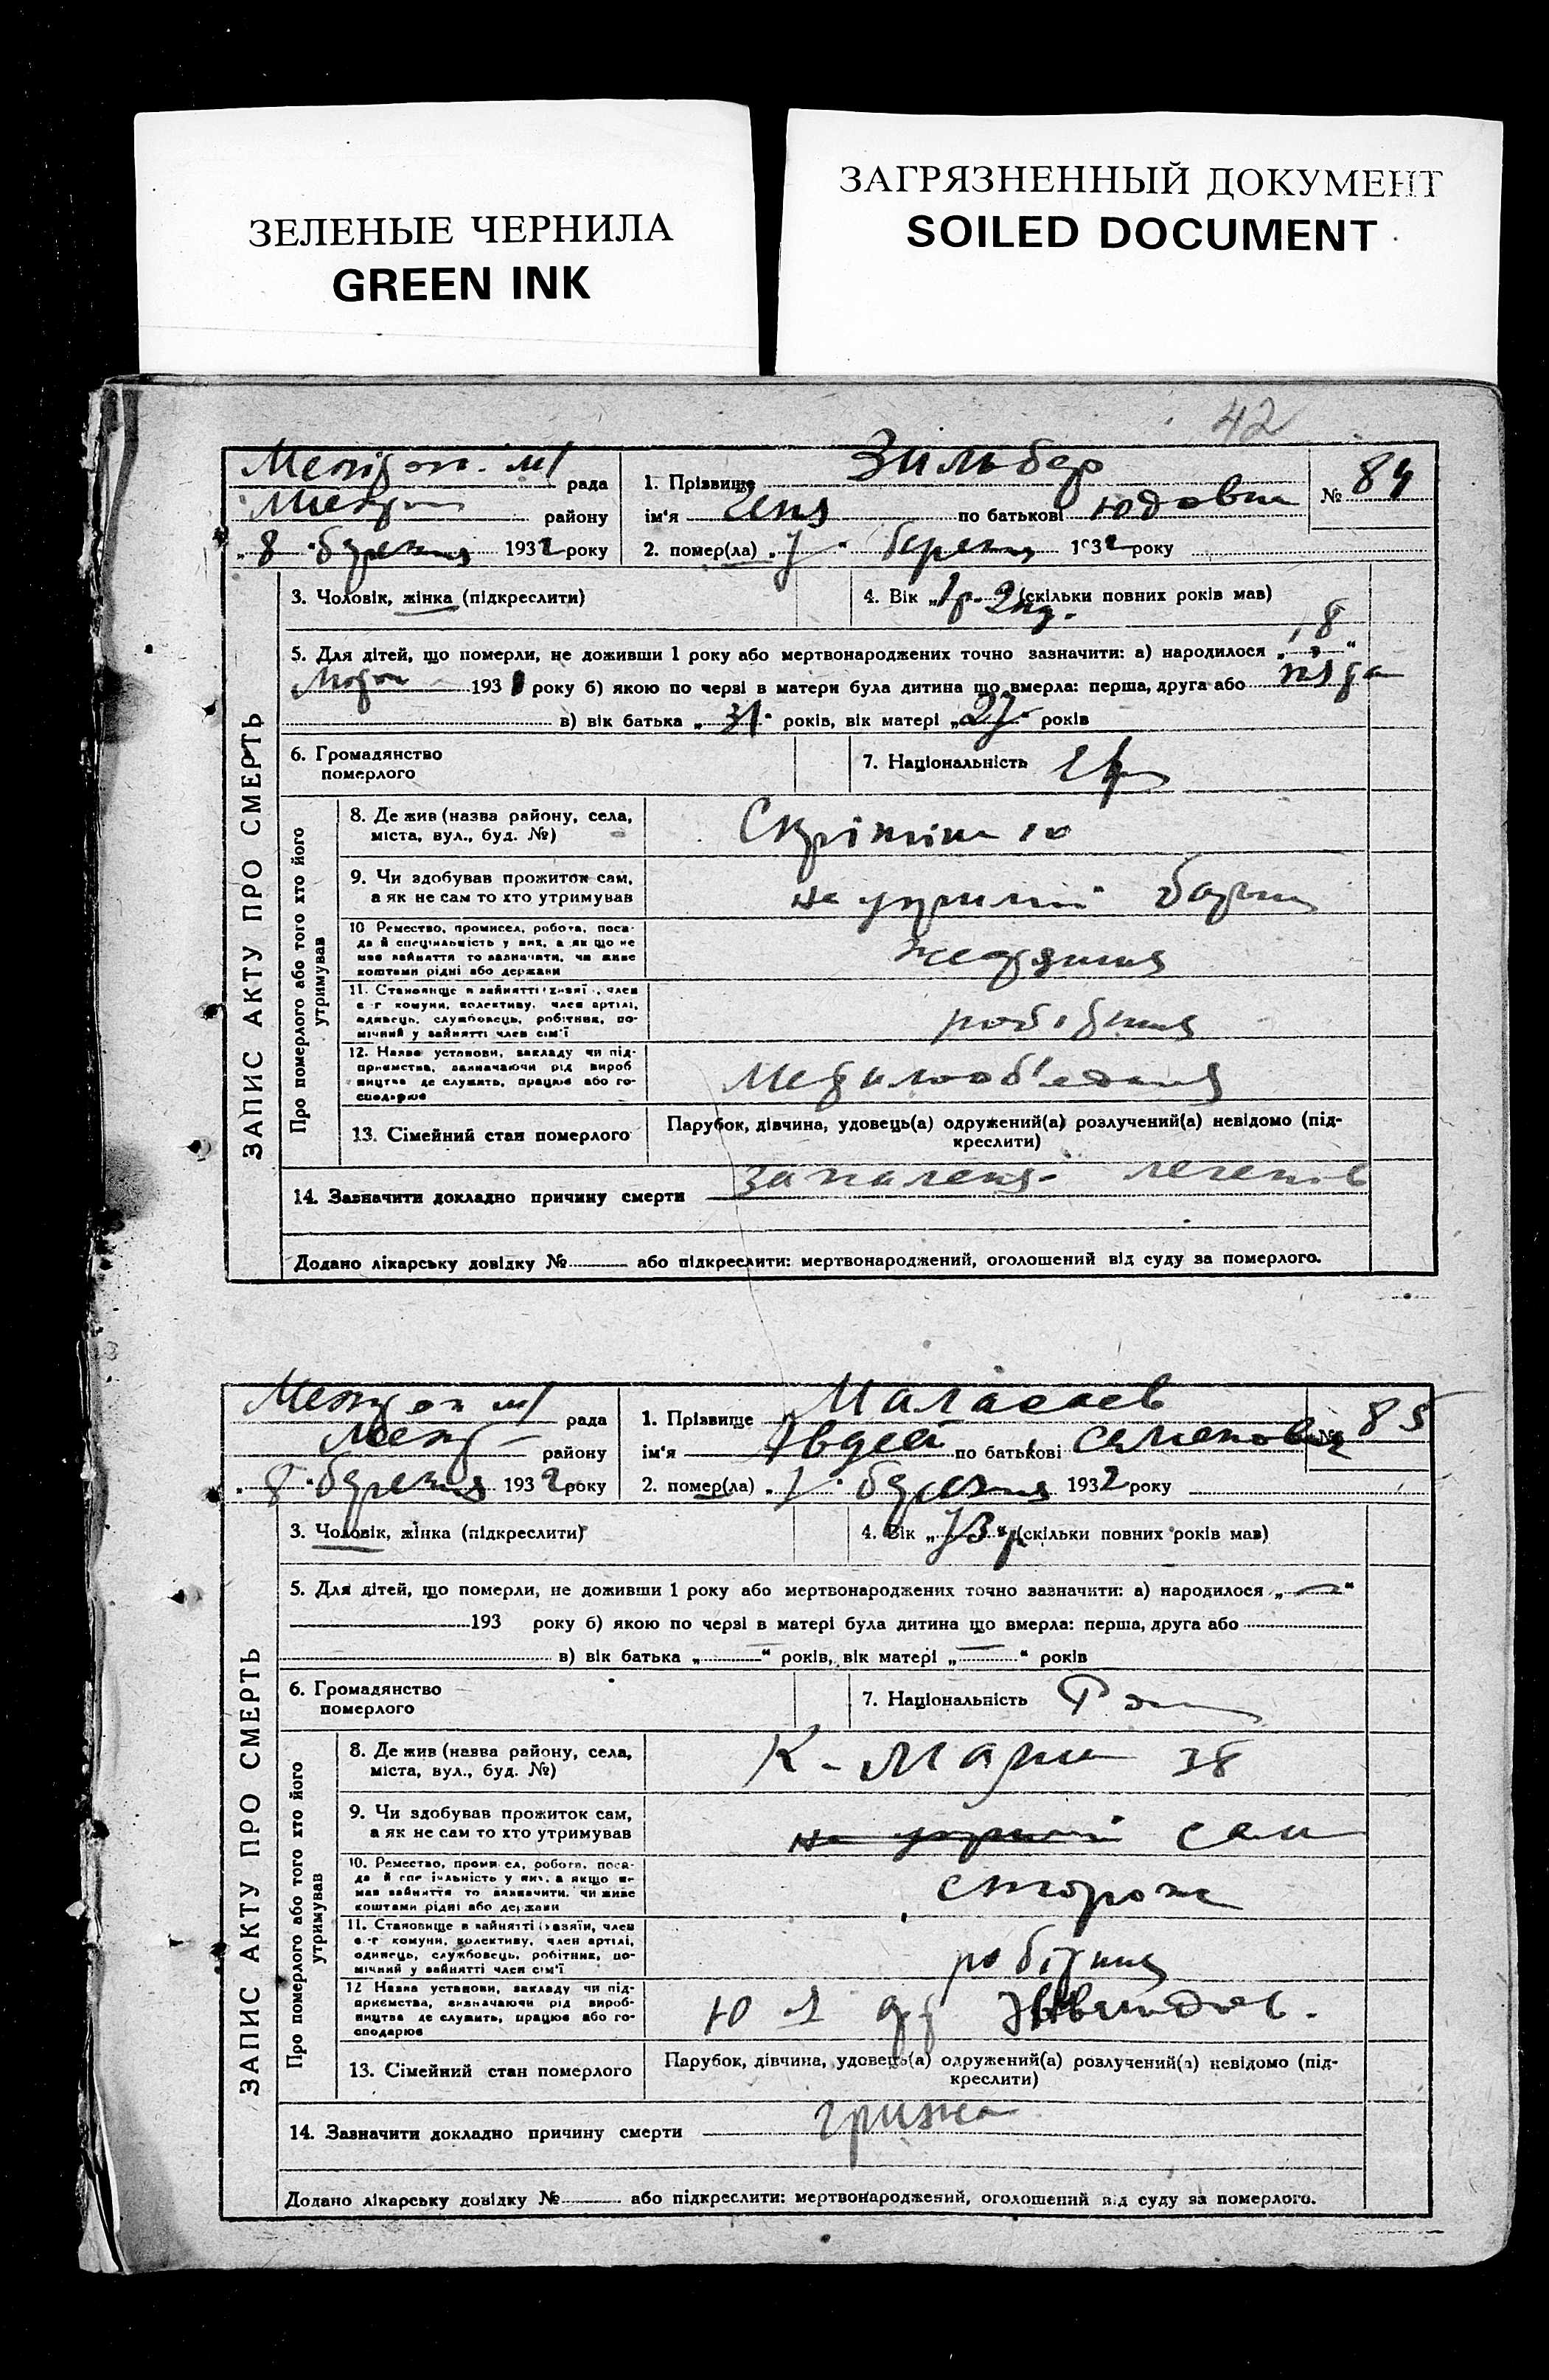 ЗЕЛЕНЫЕ ЧЕРНИЛА
GREEN INK
ЗАГРЯЗНЕННЫЙ ДОКУМЕНТ
SOILED DOCUMENT
42
рада
району
8 березня 1932 року
1. Прізвище Зильбер
ім'я по батькові Юдовна
№ 84
2. помер(ла) „7“ березня 1932 року
ЗАПИС АКТУ ПРО СМЕРТЬ
3. Чоловік, жінка (підкреслити)
4. Вік „1р. (скільки повних років мав)
5. Для дітей, що померли, не доживши 1 року або мертвонароджених точно зазначити: а) народилося
193 року б) якою по черзі в матери була дитина що вмерла: перша, друга або п'ята
в) вік батька „31“ років, вік матері „27“ років
6. Громадянство
померлого
7. Національність Євр
Про померлого або того хто його
утримував
8. Де жив (назва району, села,
міста, вул., буд. №)
10
9. Чи здобував прожиток сам,
а як не сам то хто утримував
на утриманні батька
10 Ремество, промисел, робота, поса-
да й спеціальність у них, а як що не
мав зайняття то зазначити, чи живе
коштами рідні або держави
11. Становище в зайнятті
комуни, колективу, член артілі,
одинець, службовець, робітник, по-
мічний у зайнятті член сім'ї
робітник
12. Назва установи, закладу чи під-
приємства, зазначаючи рід вироб
ництва де служить, працює або го-
сподарює
13. Сімейний стан померлого
Парубок, дівчина, удовець(а) одружений(а) розлучений(а) невідомо (під-
креслити)
14. Зазначити докладно причину смерти запалення легенів
Додано лікарську довідку № або підкреслити: мертвонароджений, оголошений від суду за померлого.
рада
району
8 березня 1932 року
1. Прізвище Маласаев
ім'я Авдей по батькові Семенович
№ 85
2. помер(ла) березня 1932 року
ЗАПИС АКТУ ПРО СМЕРТЬ
3. Чоловік, жінка (підкреслити)
4. Вік „73 р“ (скільки повних років мав)
5. Для дітей, що померли, не доживши 1 року або мертвонароджених точно зазначити: а) народилося „—“
193 року б) якою по черзі в матері була дитина що вмерла: перша, друга або
в) вік батька „—“ років, вік матері „—“ років
6. Громадянство
померлого
7. Національність
Про померлого або того хто його
утримував
8. Де жив (назва району, села,
міста, вул., буд. №)
К-Маркса 38
9. Чи здобував прожиток сам,
а як не сам то хто утримував
на утриманні сам
10. Ремество, промисел, робота, поса-
да й спеціальність у них, а якщо не
мав зайняття то зазначити, чи живе
коштами рідні або держави
сторож
11. Становище в зайнятті (хазяїн, член
с.-г комуни, колективу, член артілі,
одинець, службовець, робітник, по-
мічний у зайнятті член сім'ї
робітник
12 Назва установи, закладу чи під-
приємства, зазначаючи рід вироб-
ництва де служить, працює або го-
сподарює
13. Сімейний стан померлого
Парубок, дівчина, удовець(а) одружений(а) розлучений(а) невідомо (під-
креслити)
14. Зазначити докладно причину смерти грижа
Додано лікарську довідку № або підкреслити: мертвонароджений, оголошений від суду за померлого.